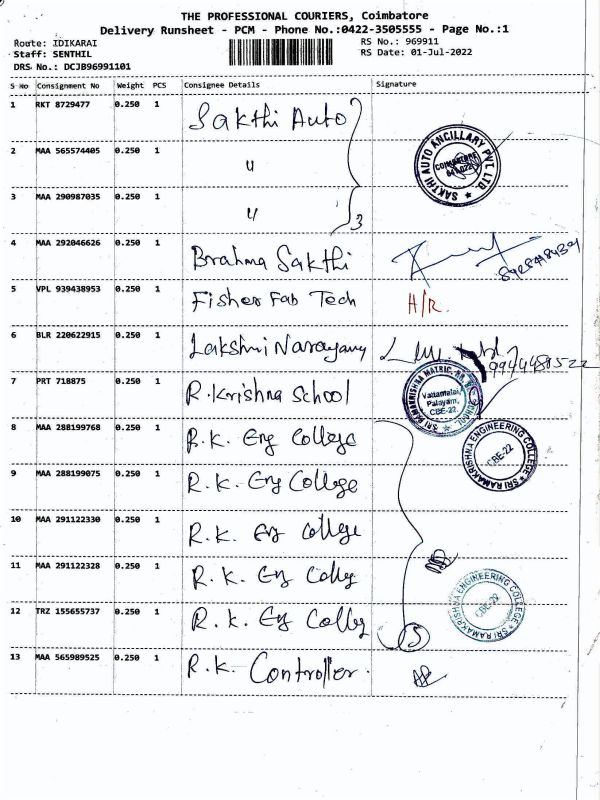 THE PROFESSIONAL COURIERS, Coimbatore
Delivery Runsheet - PCM - Phone No.:0422-3505555 - Page No.:1
Route: IDIKARAI RS No.: 969911
Staff: SENTHIL RS Date: 01-Jul-2022
DRS No.: DCJB96991101
S No Consignment No Weight PCS Consignee Details Signature
1 RKT 8729477 0.250 1 Sakthi Auto
2 MAA 565574405 0.250 1 "
SAKTHI AUTO ANCILLARY PVT LTD
COIMBATORE
3 MAA 290987035 0.250 1 " 3
4 MAA 292046626 0.250 1 Brahma Sakthi
5 VPL 939438953 0.250 1 Fisher Fab Tech H/R.
6 BLR 220622915 0.250 1 Lakshmi Narayany
7 PRT 718875 0.250 1 R.Krishna School
SRI RAMAKRISHNA MATRIC. HR. SEC. SCHOOL
Vattamalai,
Palayam,
CBE-22
8 MAA 288199768 0.250 1 R.K. Eng College
SRI RAMAKRISHNA ENGINEERING COLLEGE
CBE-22
9 MAA 288199075 0.250 1 R.K. Eng College
10 MAA 291122330 0.250 1 R.K. Eng College
11 MAA 291122328 0.250 1 R.K. Eng Colleg
12 TRZ 155655737 0.250 1 R.K. Eng Colleg 5
SRI RAMAKRISHNA ENGINEERING COLLEGE
CBE-22
13 MAA 565989525 0.250 1 R.K. Controller.